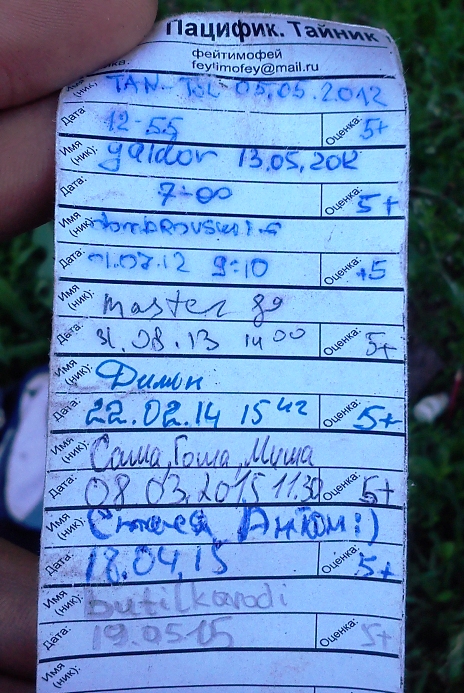 Пацифик. Тайник
фейтимофей
feytimofey@mail.ru
TAN- 05.05.2012
Дата: 12-55 Оценка: 5+
Имя (ник): galdor 13.05.2012
Дата: 7-00 Оценка: 5+
Имя (ник):
Дата: 01.07.12 9:10 Оценка: +5
Имя (ник): master 89
Дата: 31.08.13 14 00 Оценка: 5+
Имя (ник): Димон
Дата: 22.02.14 15 42 Оценка: 5+
Имя (ник): Саша, Гоша, Миша
Дата: 08 03.2015 11.30 Оценка: 5+
Имя (ник): Антон :)
Дата: 18.04.15 Оценка: 5+
Имя (ник): butilkarodi
Дата: 19.0515 Оценка: 5+
Имя (ник):